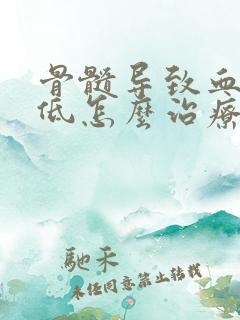 骨髓导致血
低怎麽治療
馳禾
未经同意禁止转载